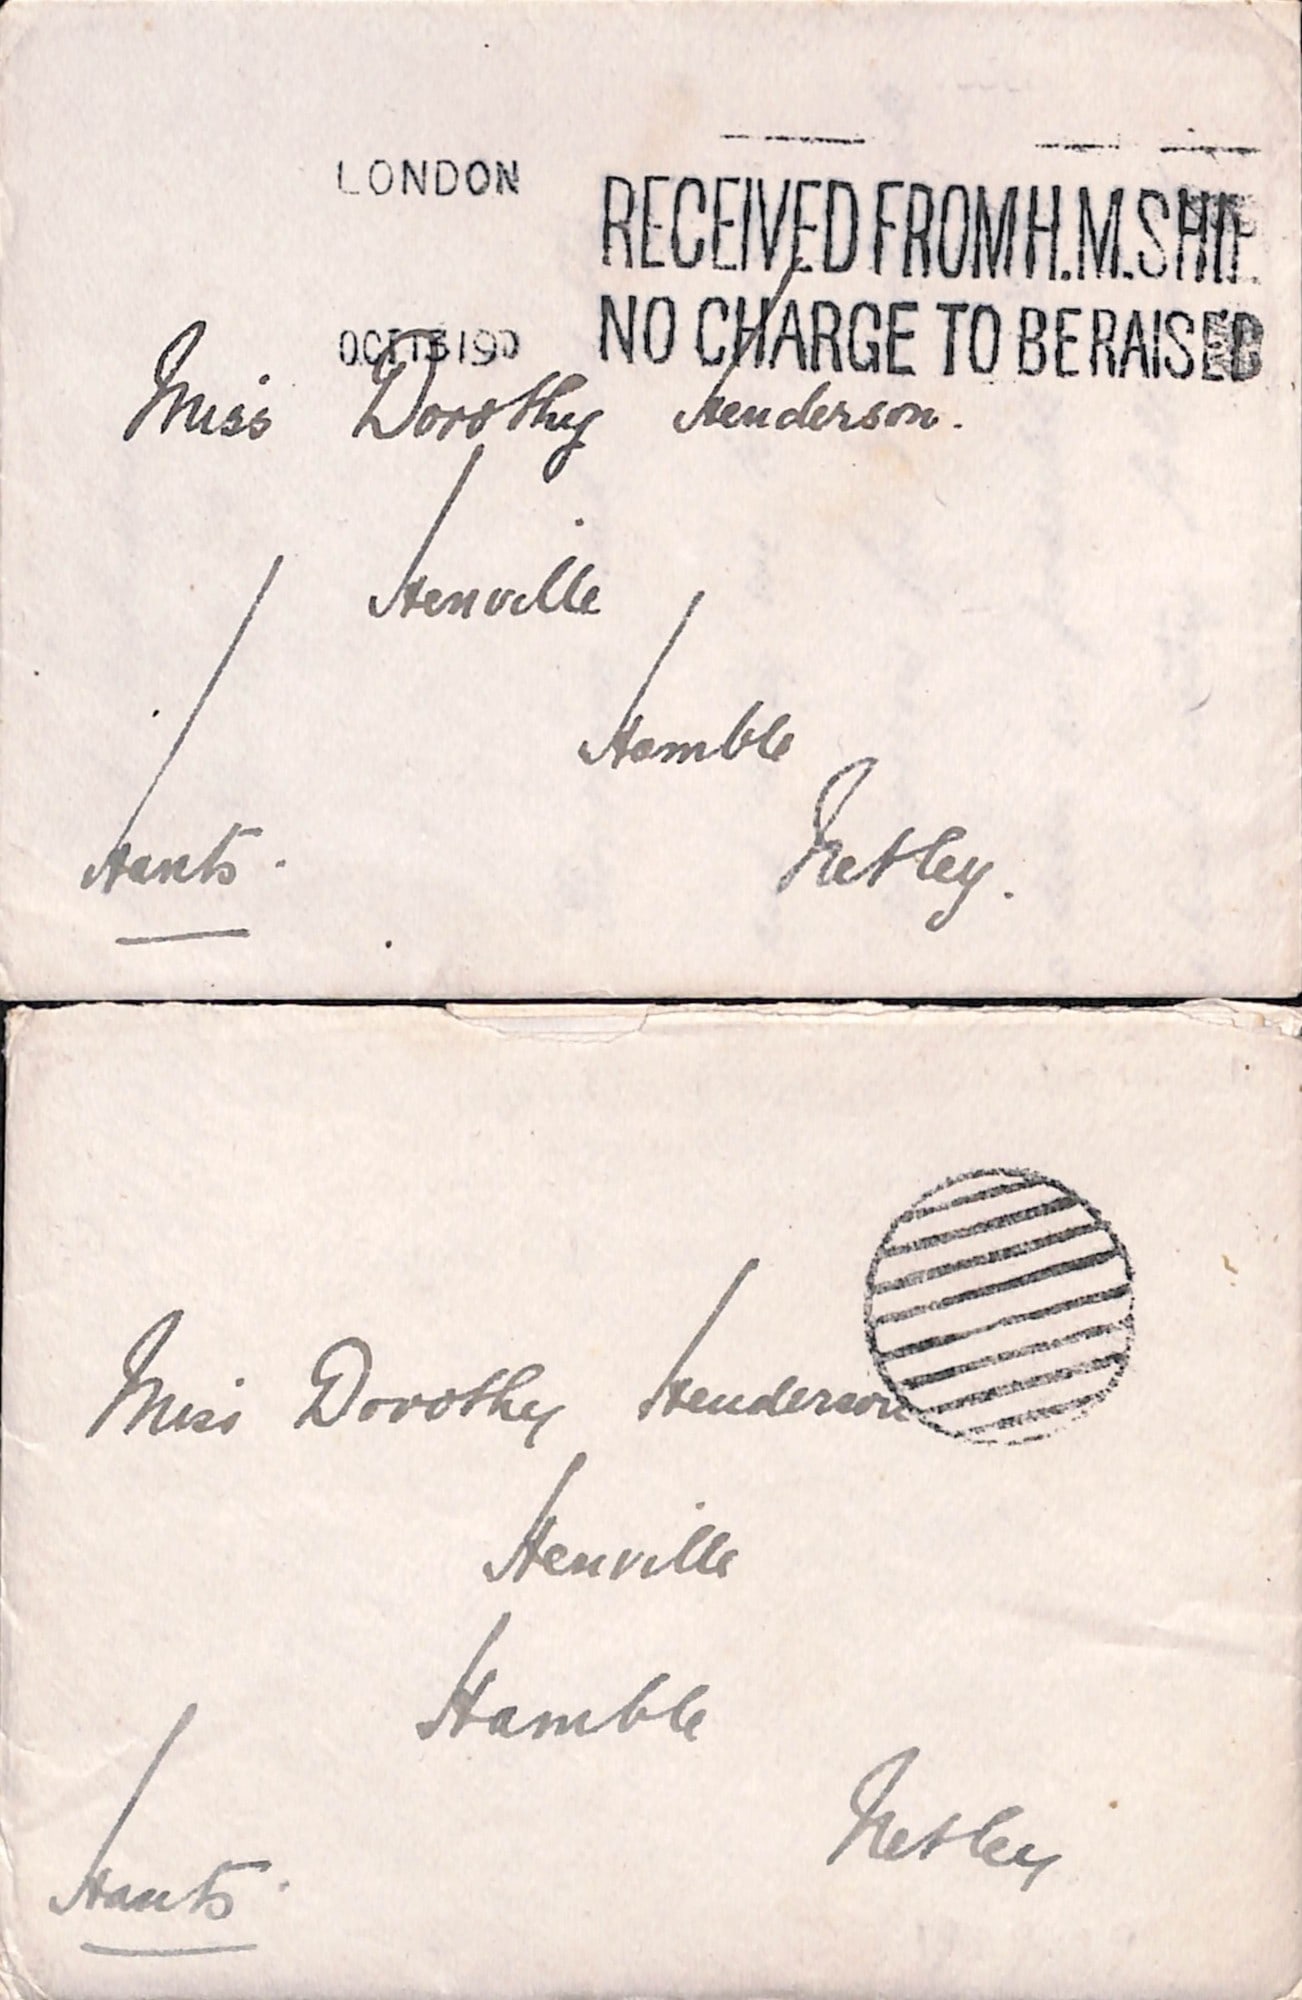 LONDON
RECEIVED FROM H.M. SHIP
NO CHARGE TO BE RAISED
OCT 13 19
Miss Dorothy Henderson.
Henville
Hamble
Netley.
Hants.
Miss Dorothy Henderson
Henville
Hamble
Netley
Hants.